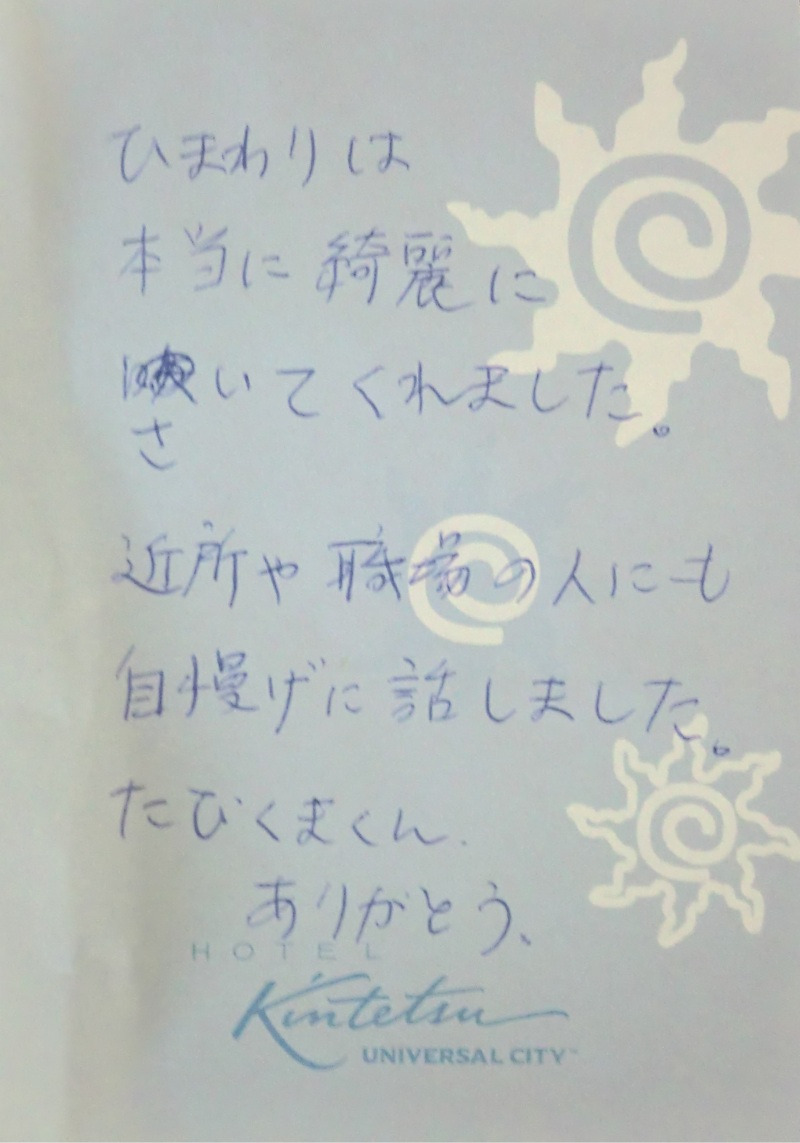 ひまわりは
本当に綺麗に
いてくれました。
さ
近所や職場の人にも
自慢げに話しました。
たびくまくん.
ありがとう、
HOTEL
Kintetsu
UNIVERSAL CITY™